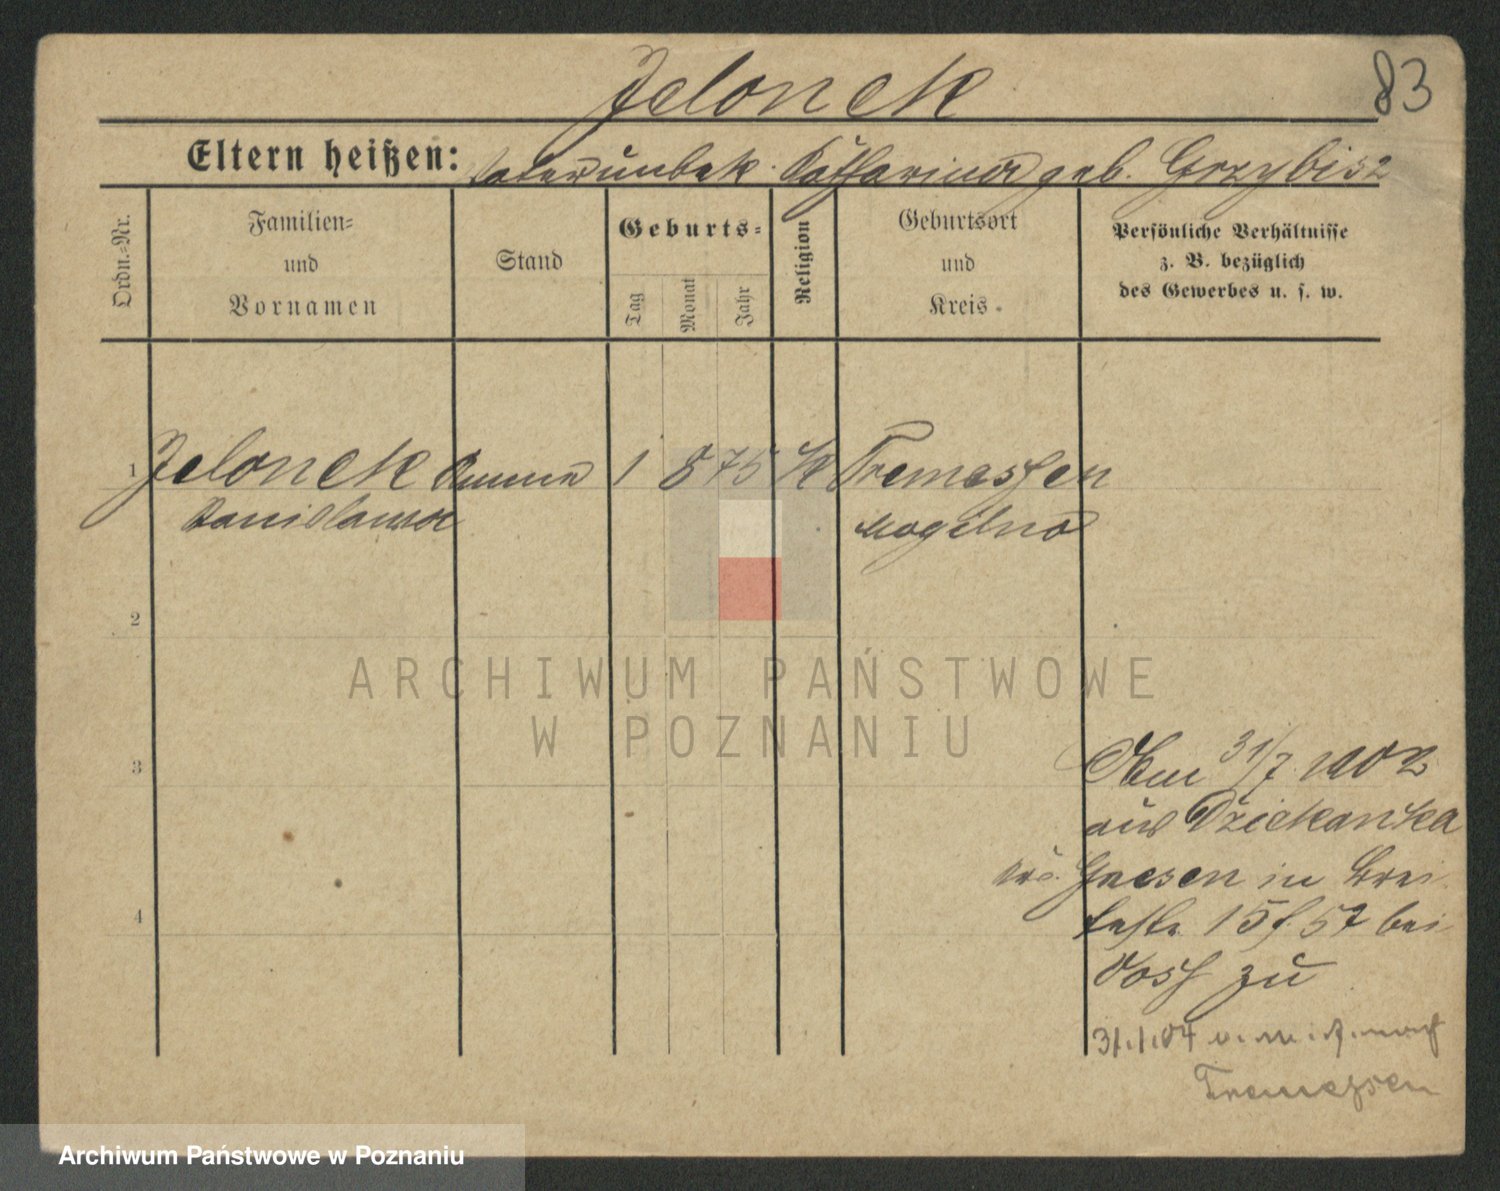 Jelonek
83
Eltern heißen: Vater unbek. Katharina geb. Grzybisz
Ordn.-Nr.
Familien-
und
Vornamen
Stand
Geburts-
Tag
Monat
Jahr
Religion
Geburtsort
und
Kreis.
Persönliche Verhältnisse
z. B. bezüglich
des Gewerbes u. s. w.
1 Jelonek Amme 1 8 75 K Tremessen
Stanislawa Mogilno
2
3
4
ARCHIWUM PAŃSTWOWE
W POZNANIU
31/7 1902
aus Dziekanka
Krs. Gnesen in Brei
testr. 15 f. 57 bei
Voss zu
31.1.04 v. m. A. nach
Tremessen
Archiwum Państwowe w Poznaniu